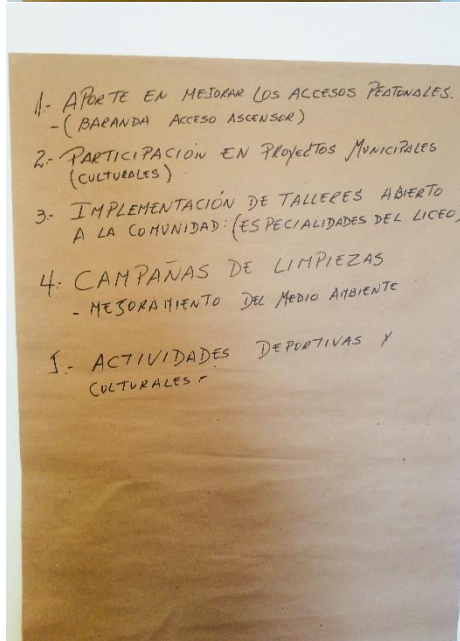 1.- APORTE EN MEJORAR LOS ACCESOS PEATONALES.
-(BARANDA ACCESO ASCENSOR)
2.- PARTICIPACIÓN EN PROYECTOS MUNICIPALES
(CULTURALES)
3.- IMPLEMENTACIÓN DE TALLERES ABIERTO
A LA COMUNIDAD: (ESPECIALIDADES DEL LICEO)
4.- CAMPAÑAS DE LIMPIEZAS
- MEJORAMIENTO DEL MEDIO AMBIENTE
5.- ACTIVIDADES DEPORTIVAS Y
CULTURALES.-